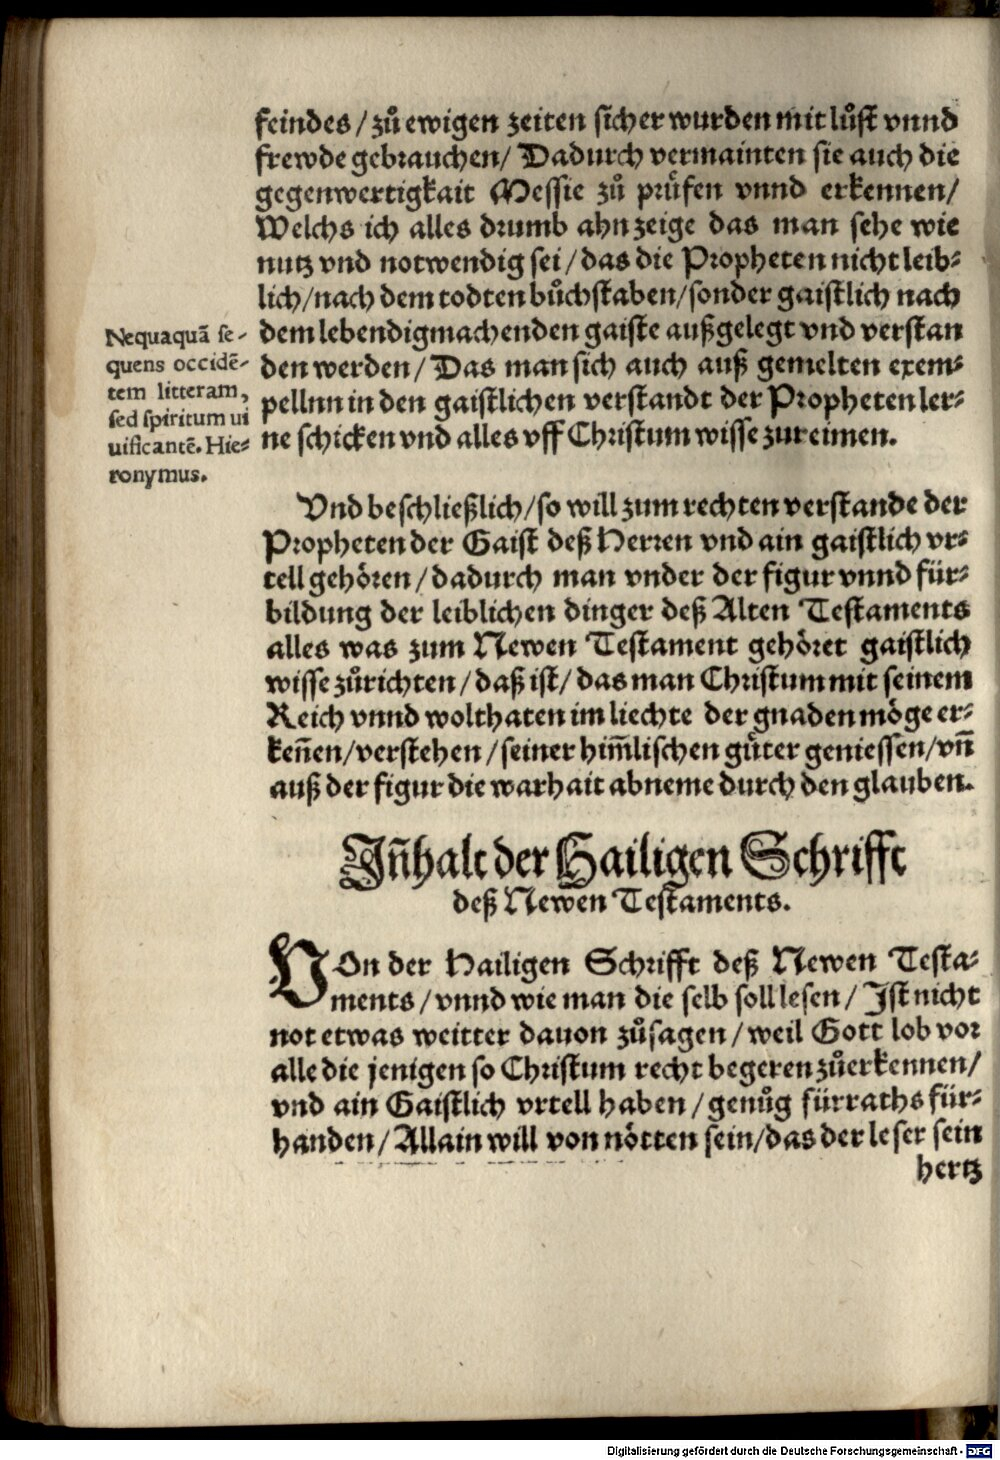 feindes / zů ewigen zeiten sicher wurden mit lůst vnnd
frewde gebrauchen / Dadurch vermainten sie auch die
gegenwertigkait Messie zů prüfen vnnd erkennen /
Welchs ich alles drumb ahnzeige das man sehe wie
nutz vnd notwendig sei / das die Propheten nicht leib-
lich / nach dem todten bůchstaben / sonder gaistlich nach
dem lebendigmachenden gaiste außgelegt vnd verstan
den werden / Das man sich auch auß gemelten exem-
pellnn in den gaistlichen verstandt der Propheten ler-
ne schicken vnd alles vff Christum wisse zureimen.
Nequaquā se-
quens occidē-
tem litteram,
sed spiritum ui
uificantē. Hie-
ronymus.
Vnd beschließlich / so will zum rechten verstande der
Propheten der Gaist deß Herren vnd ain gaistlich vr-
tell gehören / dadurch man vnder der figur vnnd für-
bildung der leiblichen dinger deß Alten Testaments
alles was zum Newen Testament gehöret gaistlich
wisse zůrichten / daß ist / das man Christum mit seinem
Reich vnnd wolthaten im liechte der gnaden möge er-
keñen / verstehen / seiner him̄lischen gůter geniessen / vñ
auß der figur die warhait abneme durch den glauben.
Jñhalt der Hailigen Schrifft
deß Newen Testaments.
VOn der Hailigen Schrifft deß Newen Testa-
ments / vnnd wie man die selb soll lesen / Jst nicht
not etwas weitter dauon zůsagen / weil Gott lob vor
alle die jenigen so Christum recht begeren zůerkennen /
vnd ain Gaistlich vrtell haben / genůg fürraths für-
handen / Allain will von nötten sein / das der leser sein
hertz
Digitalisierung gefördert durch die Deutsche Forschungsgemeinschaft - DFG